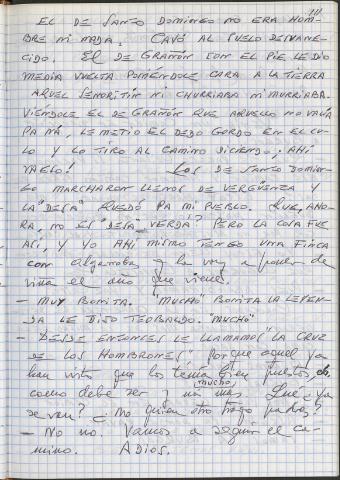 111
EL DE SANTO DOMINGO NO ERA HOM-
BRE NI NADA. CAYÓ AL SUELO DESVANE-
CIDO. EL DE GRAÑÓN CON EL PIE LE DIO
MEDIA VUELTA PONIENDOLE CARA A LA TIERRA
AQUEL SEÑORITÍN NI CHURRIABA NI MURRIABA.
VIÉNDOLE EL DE GRAÑÓN QUE AQUELLO NO VALÍA
PA NÁ, LE METIO EL DEDO GORDO EN EL CU-
LO Y LO TIRO AL CAMINO DICIENDO: ¡AHÍ
VA ELO! LOS DE SANTO DOMIN-
GO MARCHARON LLENOS DE VERGÜENZA Y
LA "DESA" QUEDÓ PA MI PUEBLO. QUE, AHO-
RA, NO ES "DESA" ¿VERDÁ? PERO LA COSA FUE
ASI, Y YO AHI MISMO TENGO UNA FINCA
con algarroba y la voy a poner de
viña el año que viene.
- MUY BONITA. "MUCHO" BONITA LA LEYEN-
DA LE DIJO TEOBALDO. "MUCHO"
- DESDE ENTONCES LE LLAMAMOS "LA CRUZ
DE LOS HOMBRONES" porque aquel ya
han visto que los tenía bien puestos,
como debe ser y mucho más. Qué ¿ya
se van? ¿No quieren otro trago padres?
- No no. Vamos a seguir el ca-
mino. ADIOS.